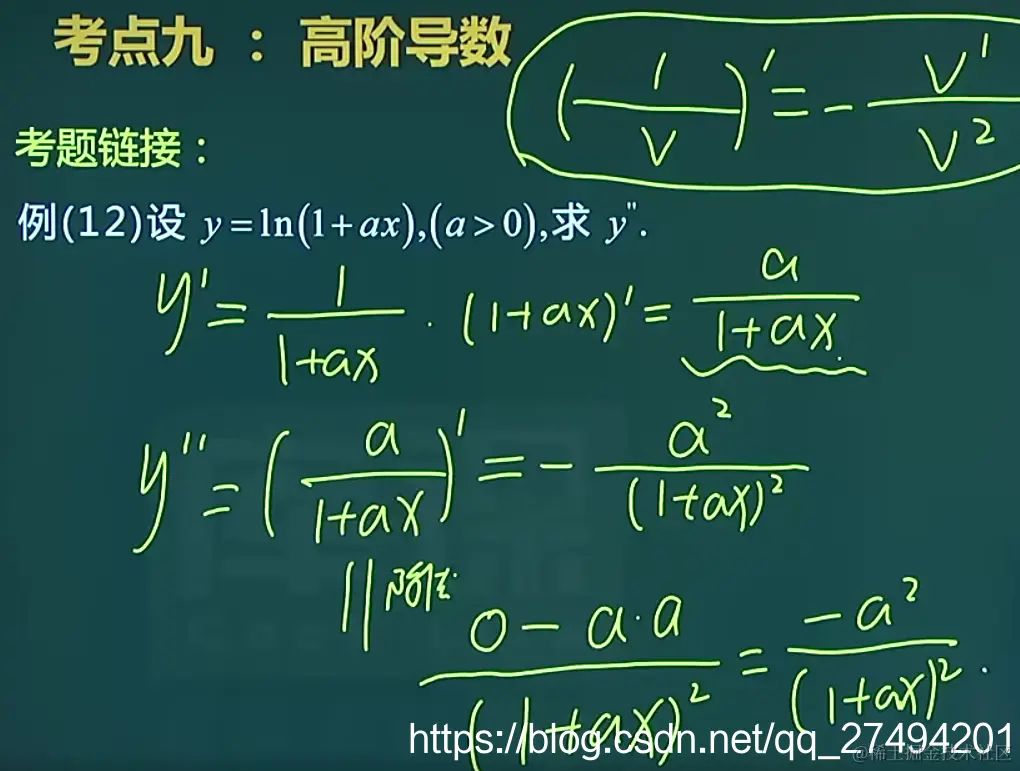 考点九 ： 高阶导数
(1/V)' = - V'/V²
考题链接：
例(12)设 y=ln(1+ax),(a>0),求 y".
y' = 1/(1+ax) · (1+ax)' = a/(1+ax)
y'' = (a/(1+ax))' = - a²/(1+ax)²
|| (0-a·a)/(1+ax)² = -a²/(1+ax)².
https://blog.csdn.net/qq_27494201
@稀土掘金技术社区